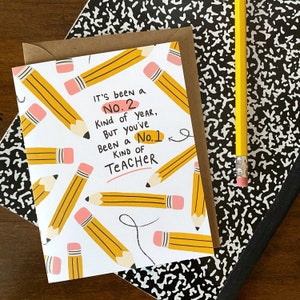 IT'S BEEN A
NO. 2
KIND OF YEAR,
BUT YOU'VE
BEEN A NO. 1
KIND OF
TEACHER